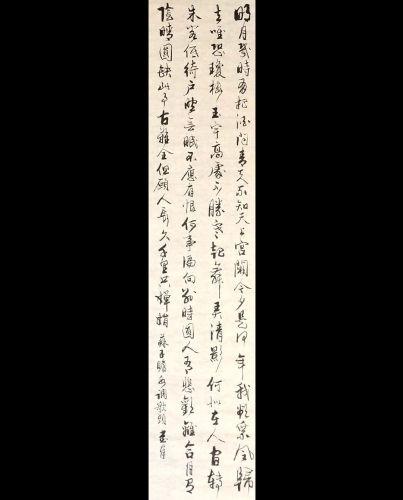 明月幾時有把酒問青天不知天上宮闕今夕是何年我欲乘風歸
去唯恐瓊樓玉宇高處不勝寒起舞弄清影何似在人間轉
朱閣低綺戶照無眠不應有恨何事偏向別時圓人有悲歡離合月有
陰晴圓缺此事古難全但願人長久千里共嬋娟 蘇子瞻水調歌頭